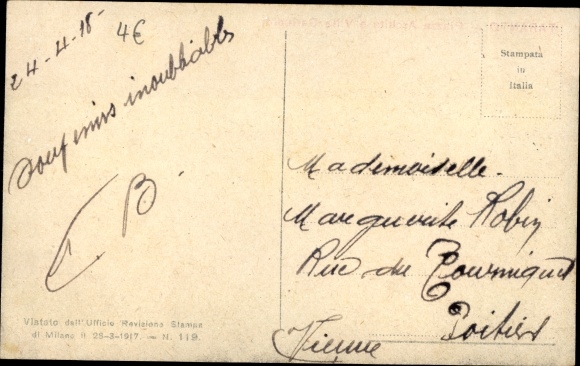 24-4-18-
4€
Souvenirs inoubliables
B
Stampata
in
Italia
Mademoiselle
Marguerite Robin
Rue du
Poitiers
Vienne
Vistato dall'Ufficio Revisione Stampa
di Milano il 25-3-1917. - N. 119.